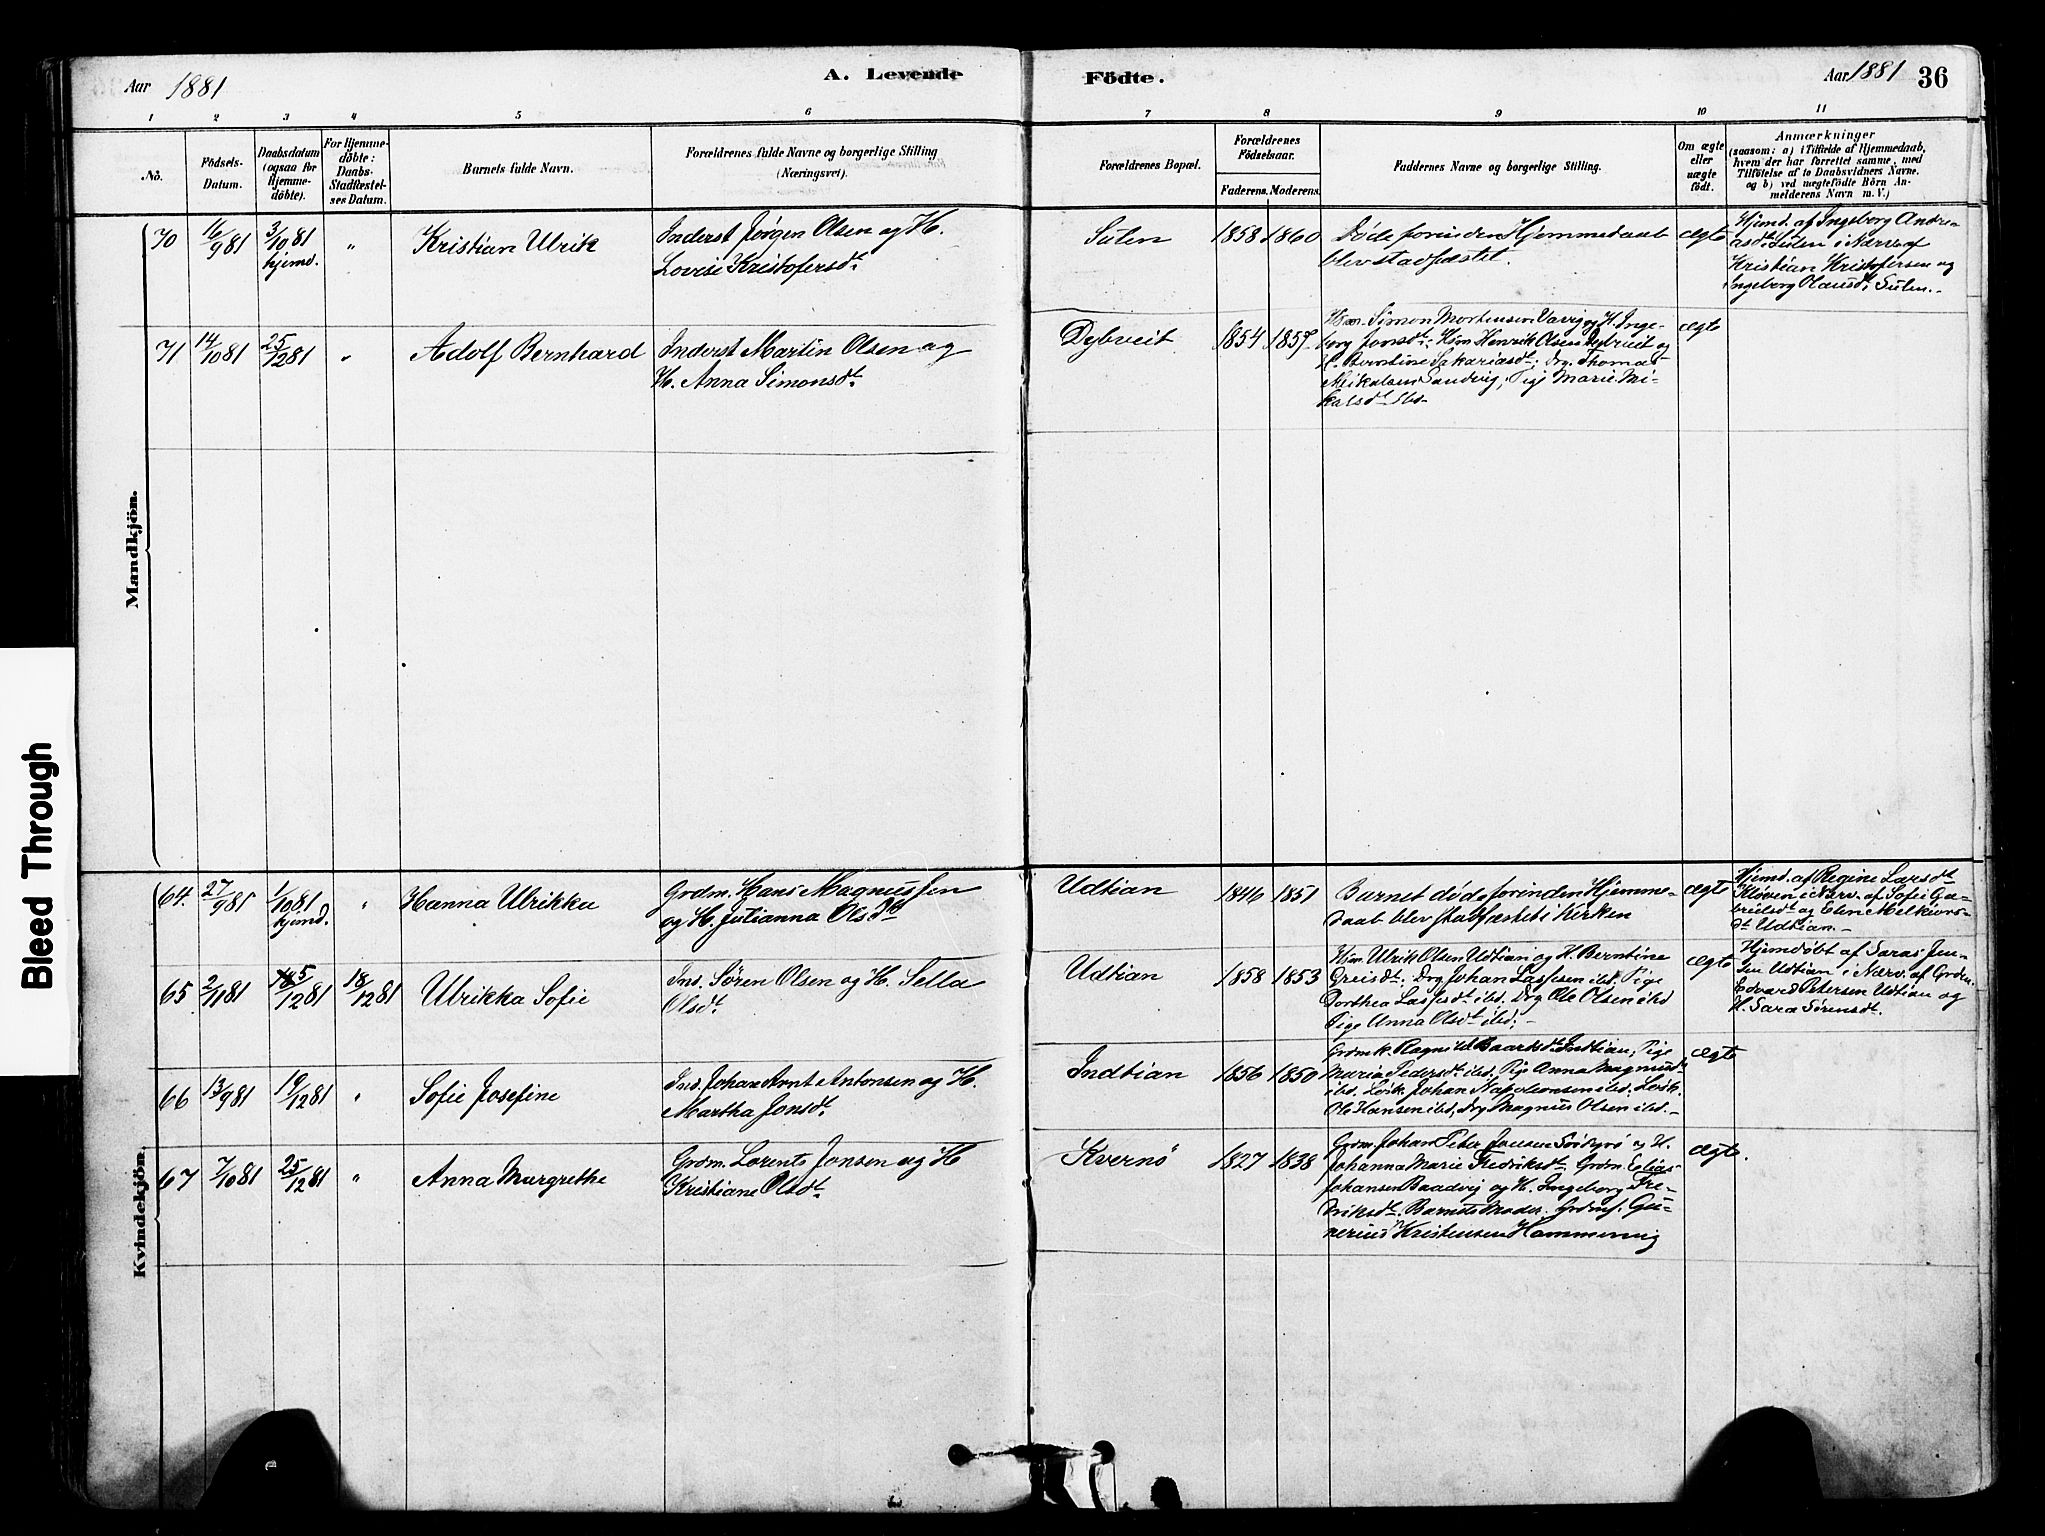 Aar 1881
A. Levende
Födte.
Aar 1881
36
1 2 3 4 5 6 7 8 9 10 11
No.
Födsels-
Datum.
Daabsdatum
(ogsaa for
Hjemme-
döbte).
For Hjemme-
döbte:
Daabs-
Stadfæstel-
ses Datum.
Barnets fulde Navn.
Forældrenes fulde Navne og borgerlige Stilling
(Næringsvei).
Forældrenes Bopæl.
Forældrenes
Födselsaar.
Faderens. Moderens.
Faddernes Navne og borgerlige Stilling.
Om ægte
eller
uægte
födt.
Anmærkninger
(saasom: a) i Tilfælde af Hjemmedaab,
hvem der har forrettet samme, med
Tilföielse af to Daabsvidners Navne,
og b) ved uægtefödte Börn An-
melderens Navn m. V.)
Mandkjön.
70
16/9 81
3/10 81
hjemd.
"
Kristian Ulrik
Inderst Jørgen Olsen og H.
Lovise Kristofersdt.
Sulen
1858
1860
Døde forinden Hjemmedaab
blev stadfæstet.
ægte
Hjemd. af Ingeborg Andre-
asdt. Sulen i Nærv. af
Kristian Kristofersen og
Ingeborg Olausdt. Sulen.
71
14/10 81
25/12 81
"
Adolf Bernhard
Inderst Martin Olsen og
H. Anna Simonsdt.
Dybveit
1854
1857
Hsm. Simon Mortensen Varrg og H. Inge-
borg Jonsdt. Hsm Henrik Olsen Dybveit og
H. Berntine Sakariasdt. Drg. Thomas
Mikalsen Sandvig, Pige Marie Mi-
kalsdt. ibd.
ægte
Kvindekjön.
64.
27/9 81
1/10 81
hjemd.
"
Hanna Ulrikka
Grdm. Hans Magnussen
og H. Julianna Olsdt.
Udtian
1846
1851
Barnet døde forinden Hjemme-
daab blev stadfæstet i Kirken
ægte
Hjemd. af Regine Larsdt.
Kløven i Nærv. af Sofi Ga-
brielsdt. og Elen Melkiors-
dt. Udtian.
65
2/11 81
5/12 81
18/12 81
Ulrikka Sofie
Ind. Søren Olsen og H. Sella
Olsdt.
Udtian
1858
1853
Hsm. Ulrik Olsen Udtian og H. Berntine
Greisdt. Drg Johan Lassesen ibd. Pige
Dorthea Lassesdt. ibd. Drg Ole Olsen ibd
Pige Anna Olsdt. ibd.
ægte
Hjemdøbt af Saras Jen-
sen Udtian i Nærv. af Grdm.
Edvard Petersen Udtian og
H. Sara Sørensdt.
66
13/9 81
19/12 81
"
Sofie Josefine
Ind. Johan Arnt Antonsen og H.
Martha Jonsdt.
Indtian
1856
1850
Grdmk. Ragnild Baardsdt. Indtian, Pige
Maria Pedersdt. ibd. Pig Anna Magnusdt.
ibd. Løsk. Johan Napoleonsen ibd. Løsk.
Ole Hansen ibd. Drg Magnus Olsen ibd.
ægte
67
7/10 81
25/12 81
"
Anna Margrethe
Grdm. Lorents Jonsen og H
Kristiane Olsdt.
Kvernø
1827
1838
Grdm. Johan Peter Jensen og H.
Johanna Marie Fredriksdt. Grdm. Elias
Johansen Baadvig og H. Ingeborg Fre-
driksdt. Barnets Moder. Grdms. Gu-
nerius Kristensen Hammervig
ægte.
Bleed Through